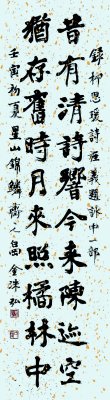 錄柳思瑗詩義題詠中一部
昔有清詩響今來陳迹空
猶存舊時月來照橘林中
壬寅初夏星山錦鱗齋人金洙弘